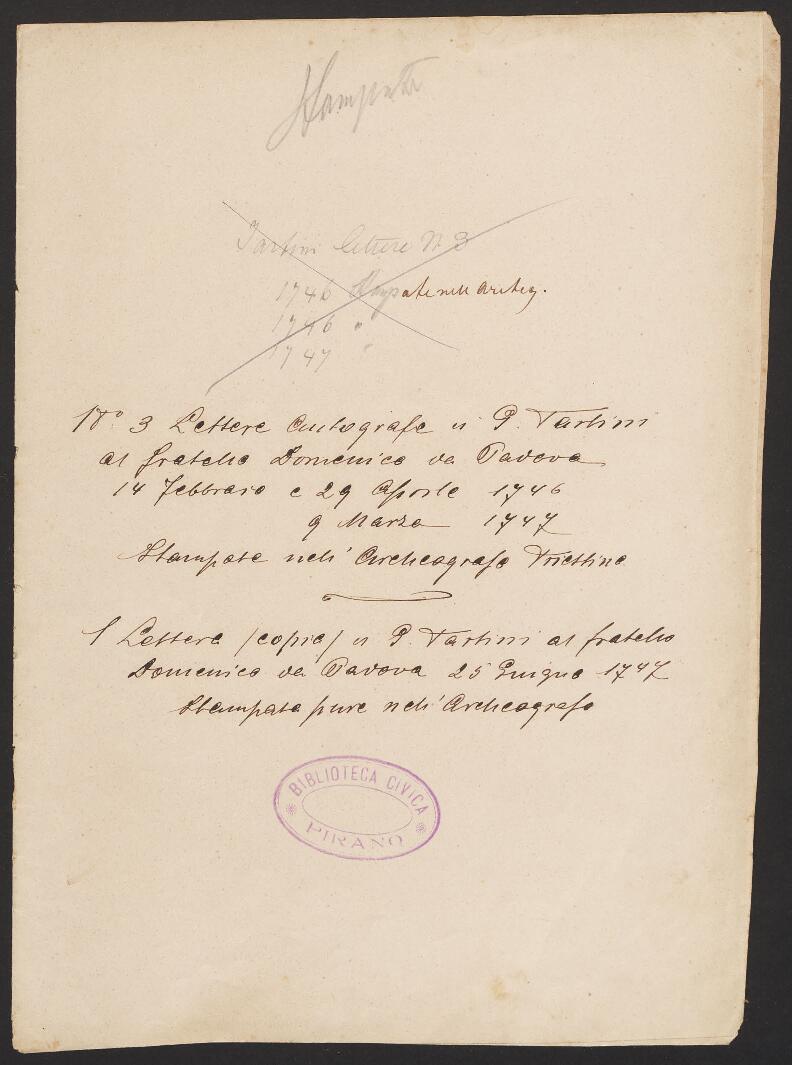 Stampate
Tartini lettere N. 3
1746 Stampate nell' Archeog.
1746 "
1747 "
No. 3 Lettere autografe di G. Tartini
al fratello Domenico da Padova
14 Febbraio e 29 Aprile 1746
9 Marzo 1747
Stampate nell' Archeografo Triestino
1 Lettera (copia) di G. Tartini al fratello
Domenico da Padova 25 Giugno 1747
Stampata pure nell' Archeografo
BIBLIOTECA CIVICA
PIRANO